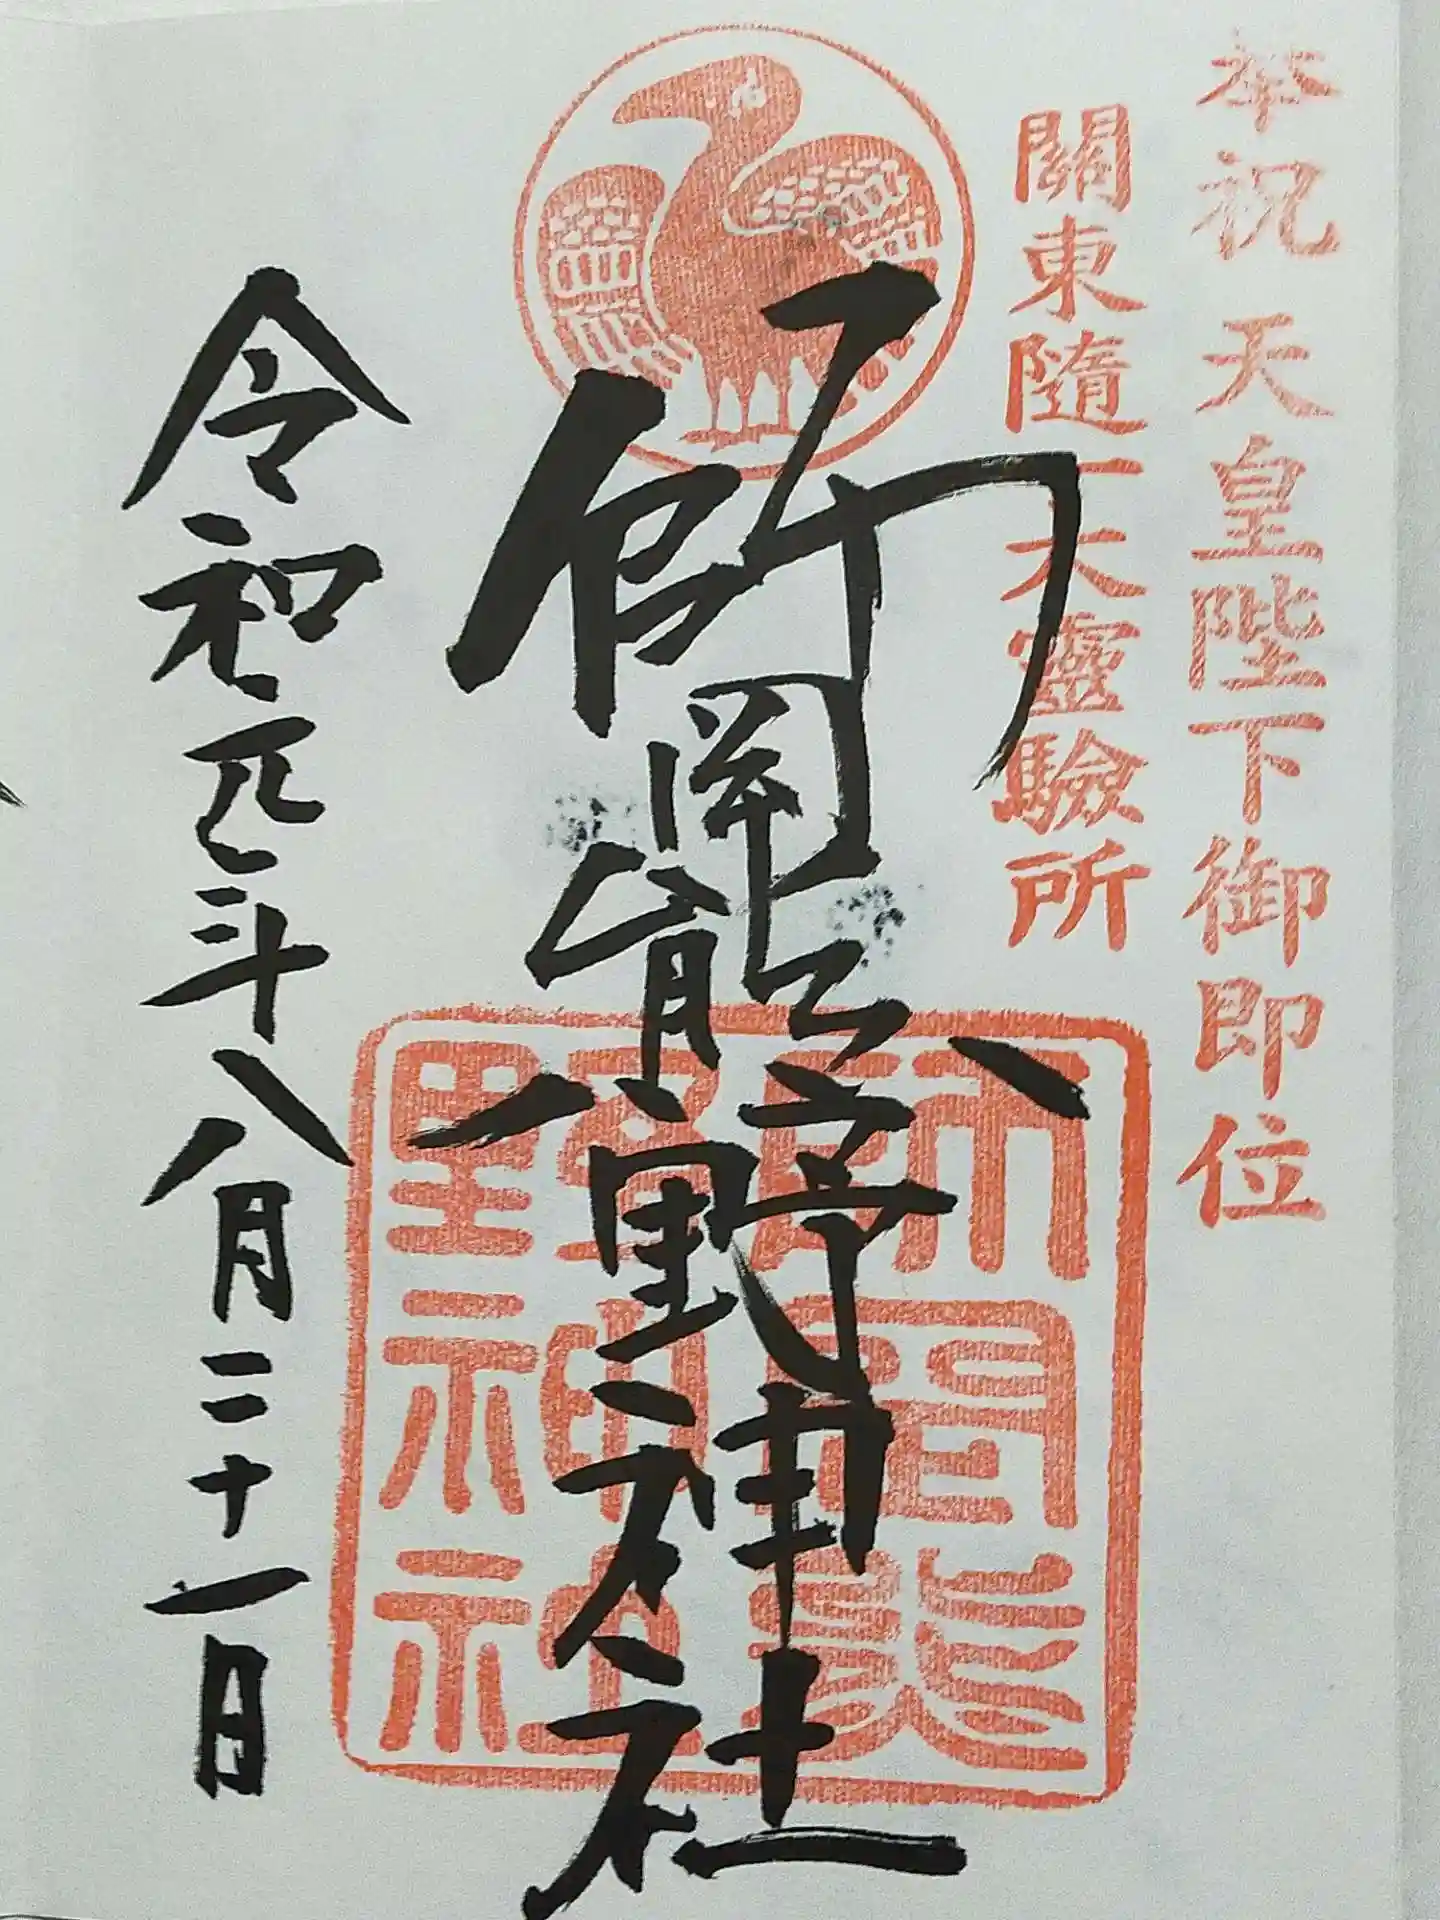 奉祝 天皇陛下御即位
關東隨一大靈驗所
師岡熊野神社
師岡熊野神社
令和元年八月二十一日